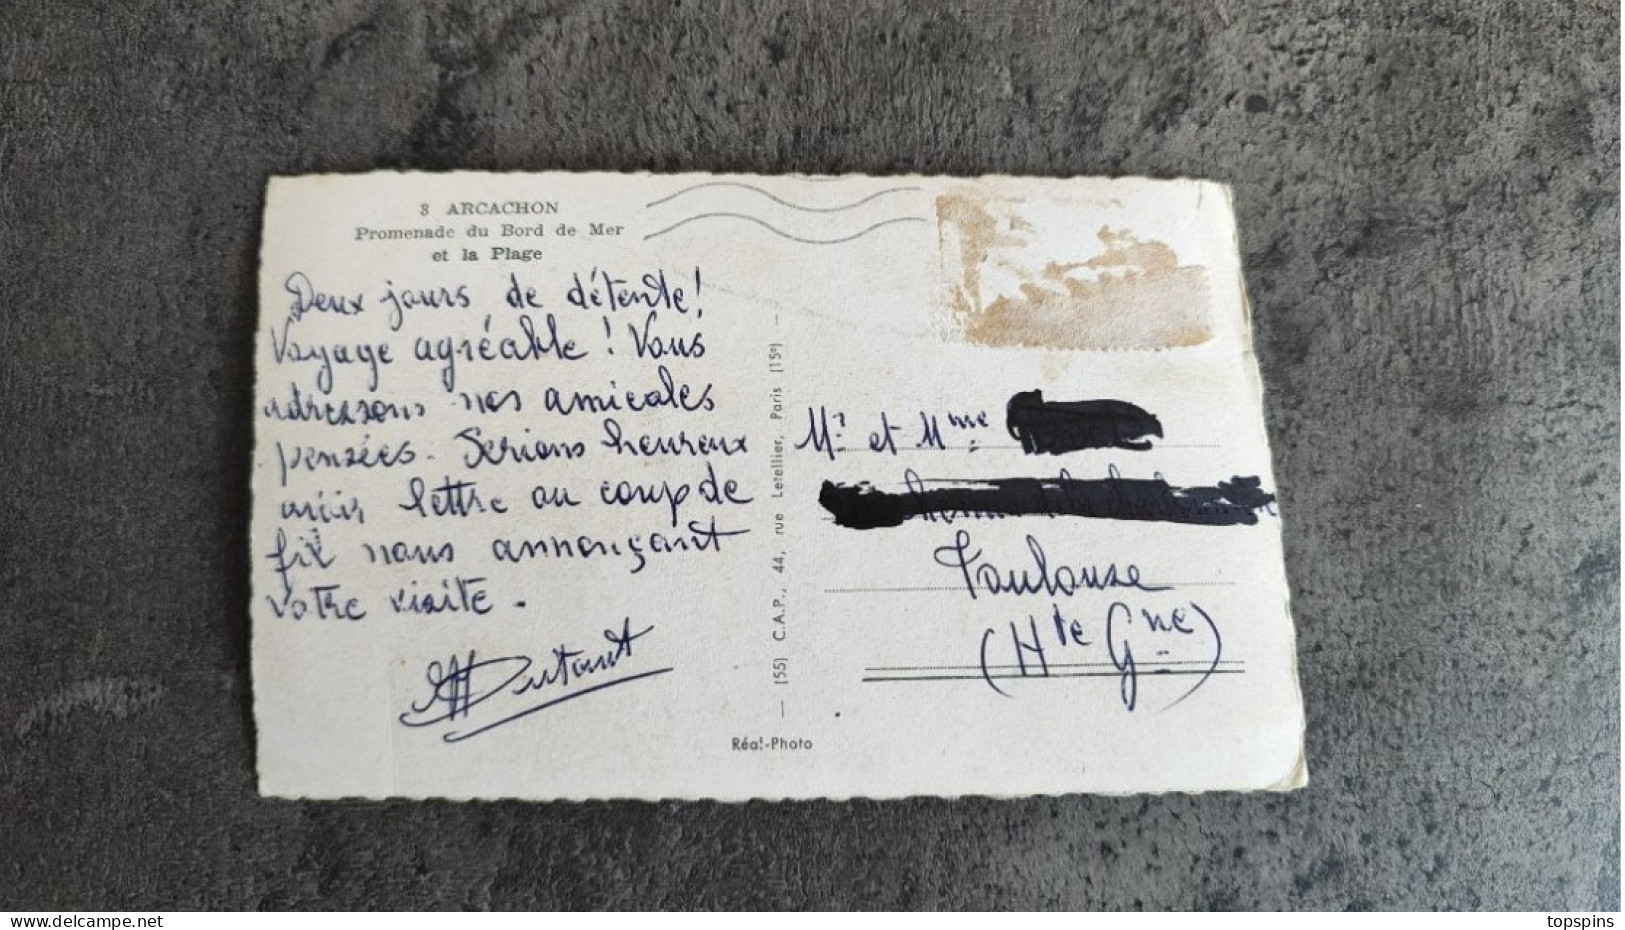 8 ARCACHON
Promenade du Bord de Mer
et la Plage
Deux jours de détente!
Voyage agréable! Vous
adressons nos amicales
pensées. Serions heureux
avoir lettre ou coup de
fil nous annonçant
votre visite.
Dutaut
— (55) C.A.P., 44, rue Letellier, Paris (15e) —
Réal-Photo
Mr et Mme
Toulouse
(Hte Gne)
www.delcampe.net
topspins